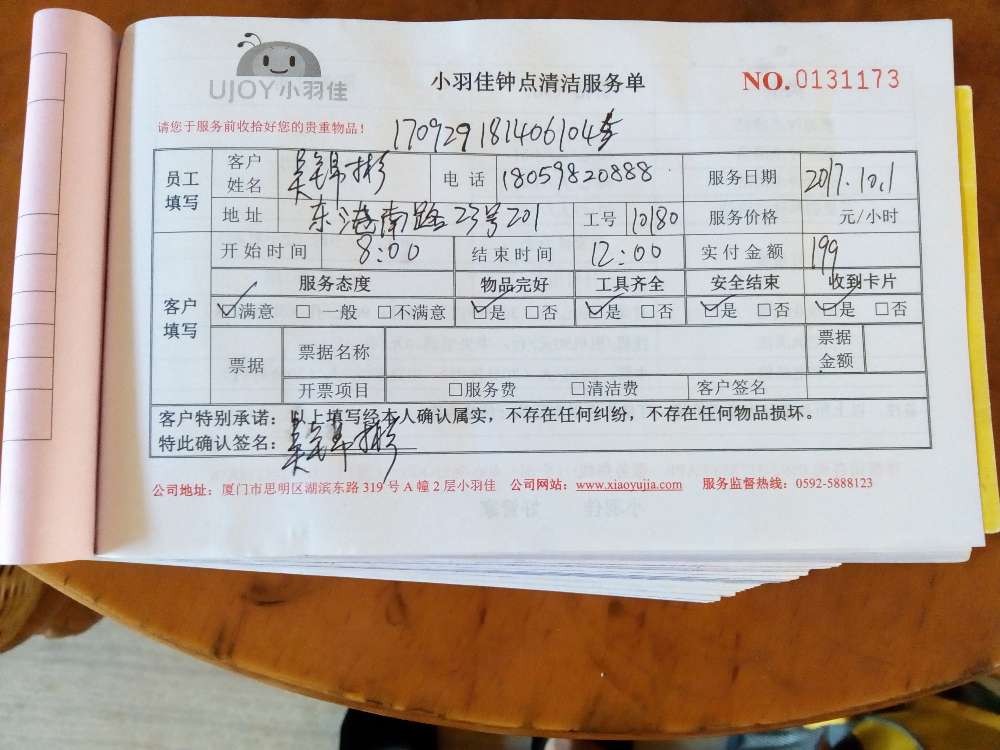 UJOY小羽佳
小羽佳钟点清洁服务单
NO.0131173
请您于服务前收拾好您的贵重物品！
170929181406104
员工填写 客户姓名 吴锦彬 电话 18059820888 服务日期 2017.10.1
地址 东港南路23号201 工号 10180 服务价格 元/小时
客户填写 开始时间 8:00 结束时间 12:00 实付金额 199
服务态度 物品完好 工具齐全 安全结束 收到卡片
☑满意 □ 一般 □不满意 ☑是 □否 ☑是 □否 ☑是 □否 ☑是 □否
票据 票据名称 票据金额
开票项目 □服务费 □清洁费 客户签名
客户特别承诺：以上填写经本人确认属实，不存在任何纠纷，不存在任何物品损坏。
特此确认签名：吴锦彬
公司地址：厦门市思明区湖滨东路 319 号 A 幢 2 层小羽佳 公司网站：www.xiaoyujia.com 服务监督热线：0592-5888123